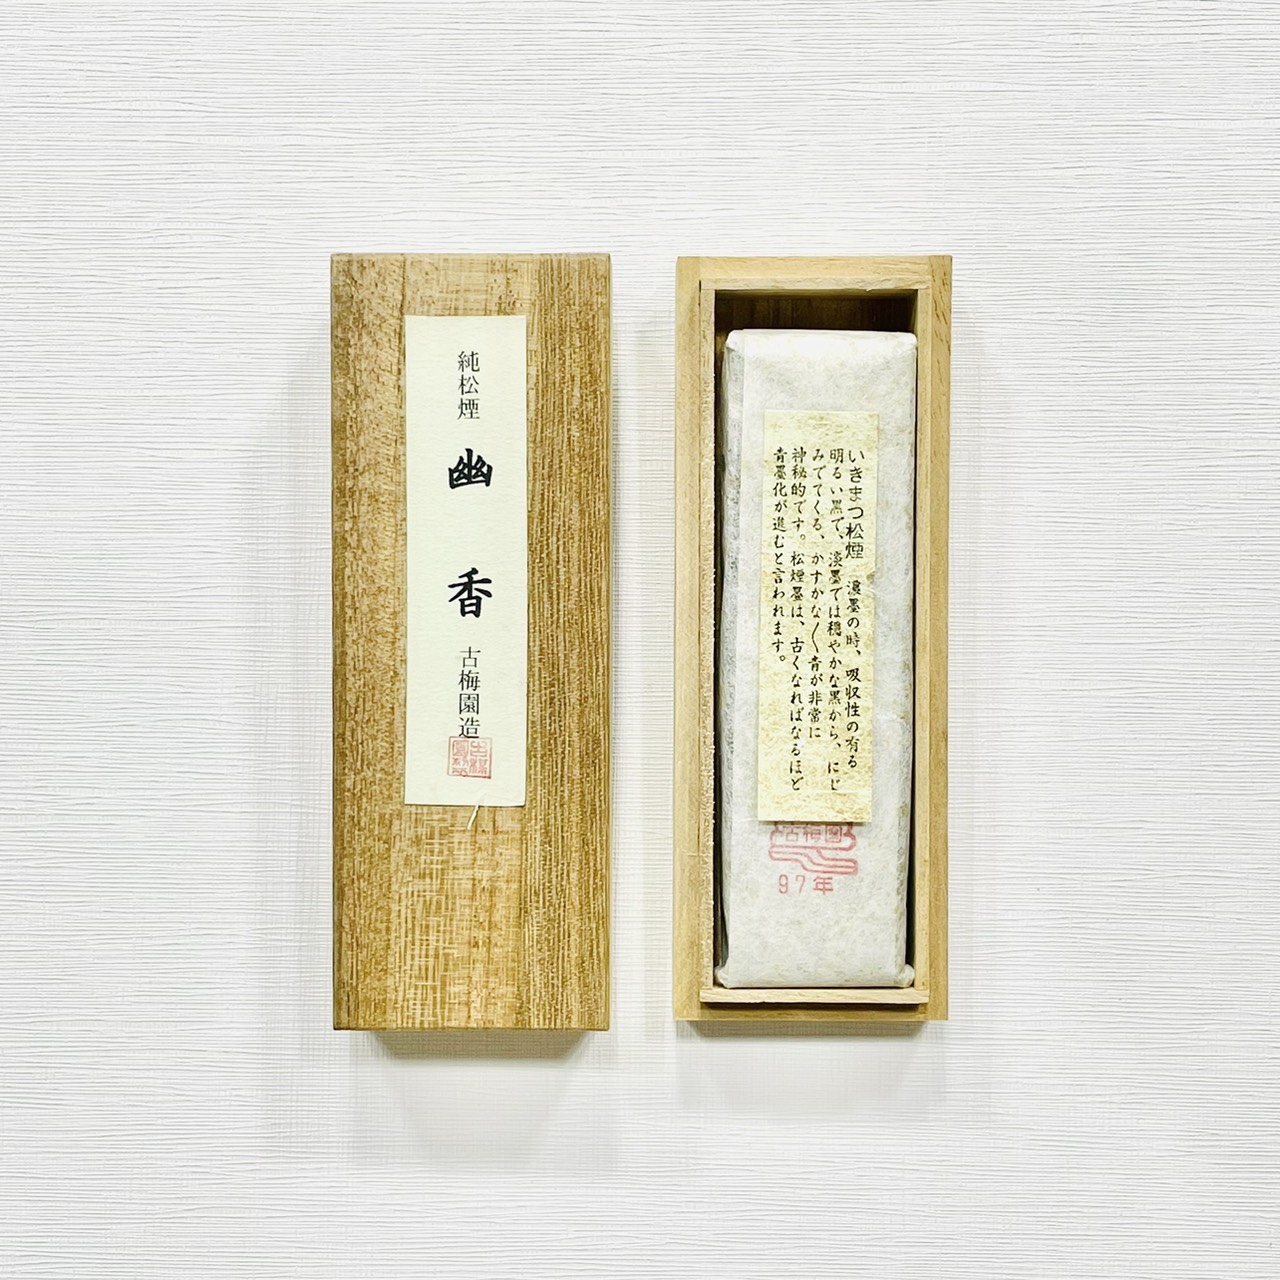 純松煙
幽香
古梅園造
いきまつ松煙　濃墨の時、吸収性の有る
明るい黒で、淡墨では穏やかな黒から、にじ
みでてくる、かすかな〱青が非常に
神秘的です。松煙墨は、古くなればなるほど
青墨化が進むと言われます。
古梅園
97年